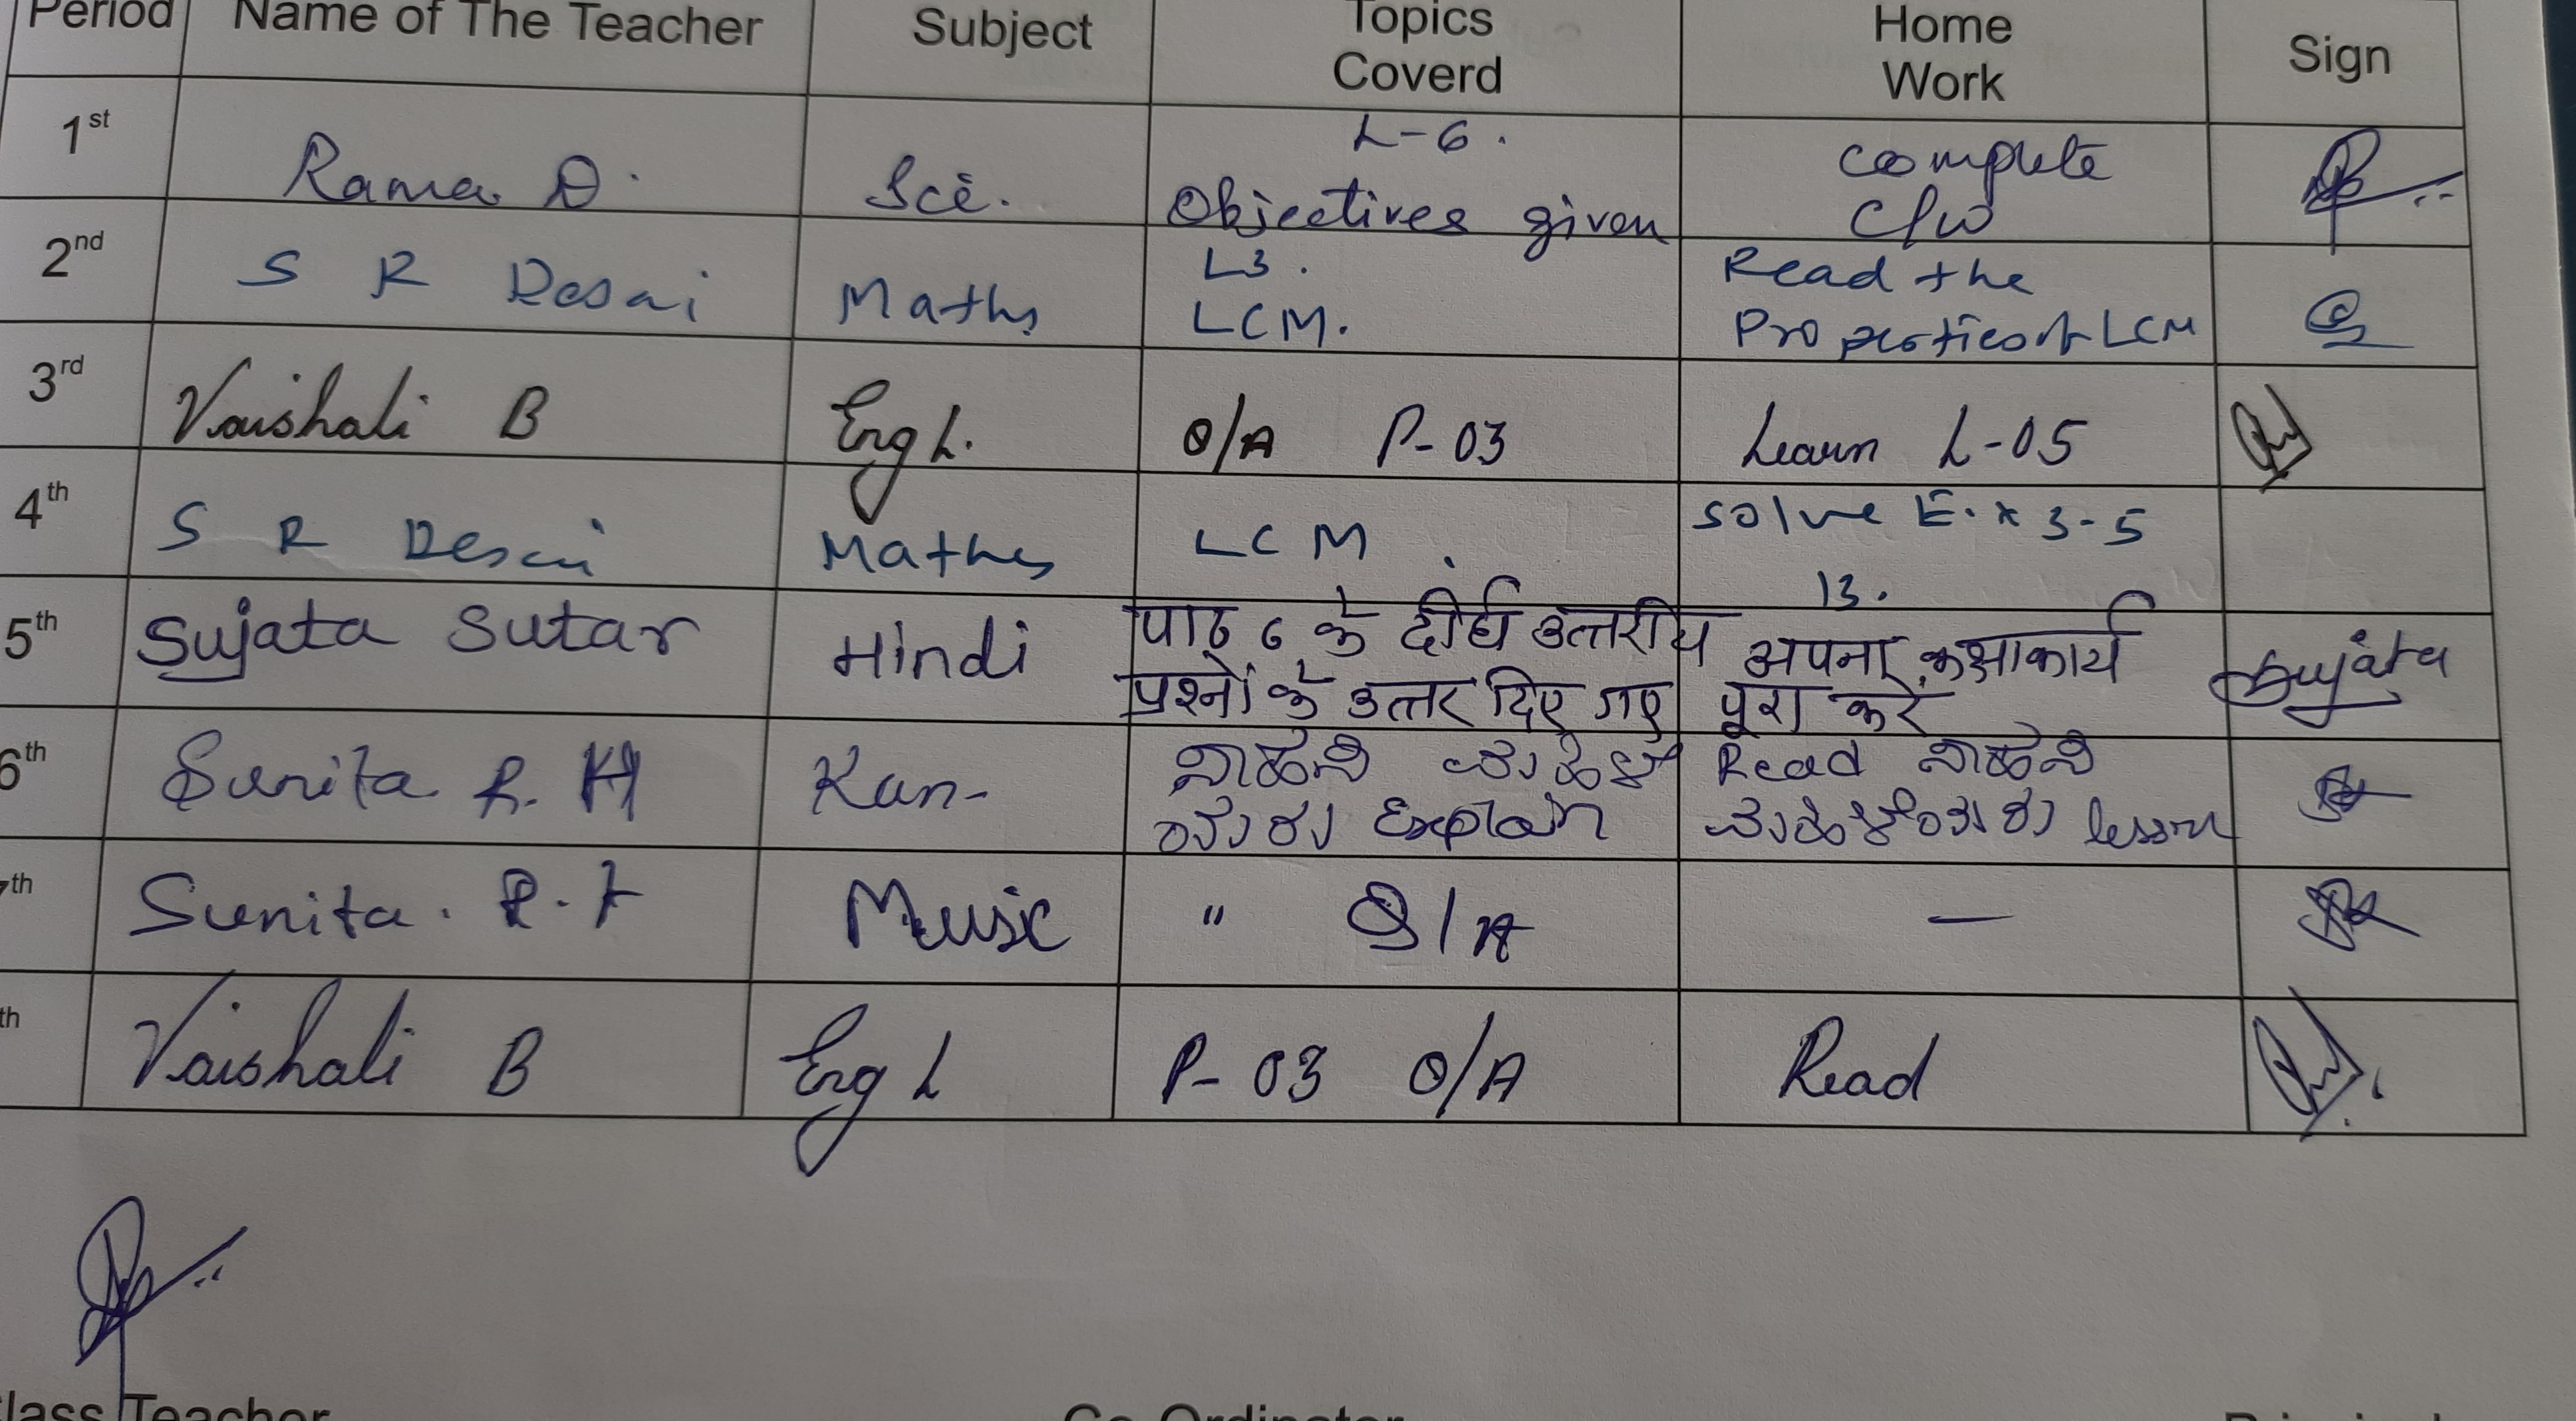 Period Name of The Teacher Subject Topics Coverd Home Work Sign
1st Rama D. Sci. L-6. Objectives given complete C/W
2nd S R Desai Maths L3. LCM. Read the Properties of LCM
3rd Vaishali B Eng L. Q/A P-03 Learn L-05
4th S R Desai Maths LCM. solve E.x 3-5 13.
5th Sujata Sutar Hindi पाठ 6 के दीर्घ उत्तरीय प्रश्नों के उत्तर दिए गए अपना कक्षाकार्य पूरा करें Sujata
6th Sunita R. H Kan- Explain Read lesson
th Sunita. R. Music " Q/A —
th Vaishali B Eng L P-03 Q/A Read
lass Teacher Co-Ordinator